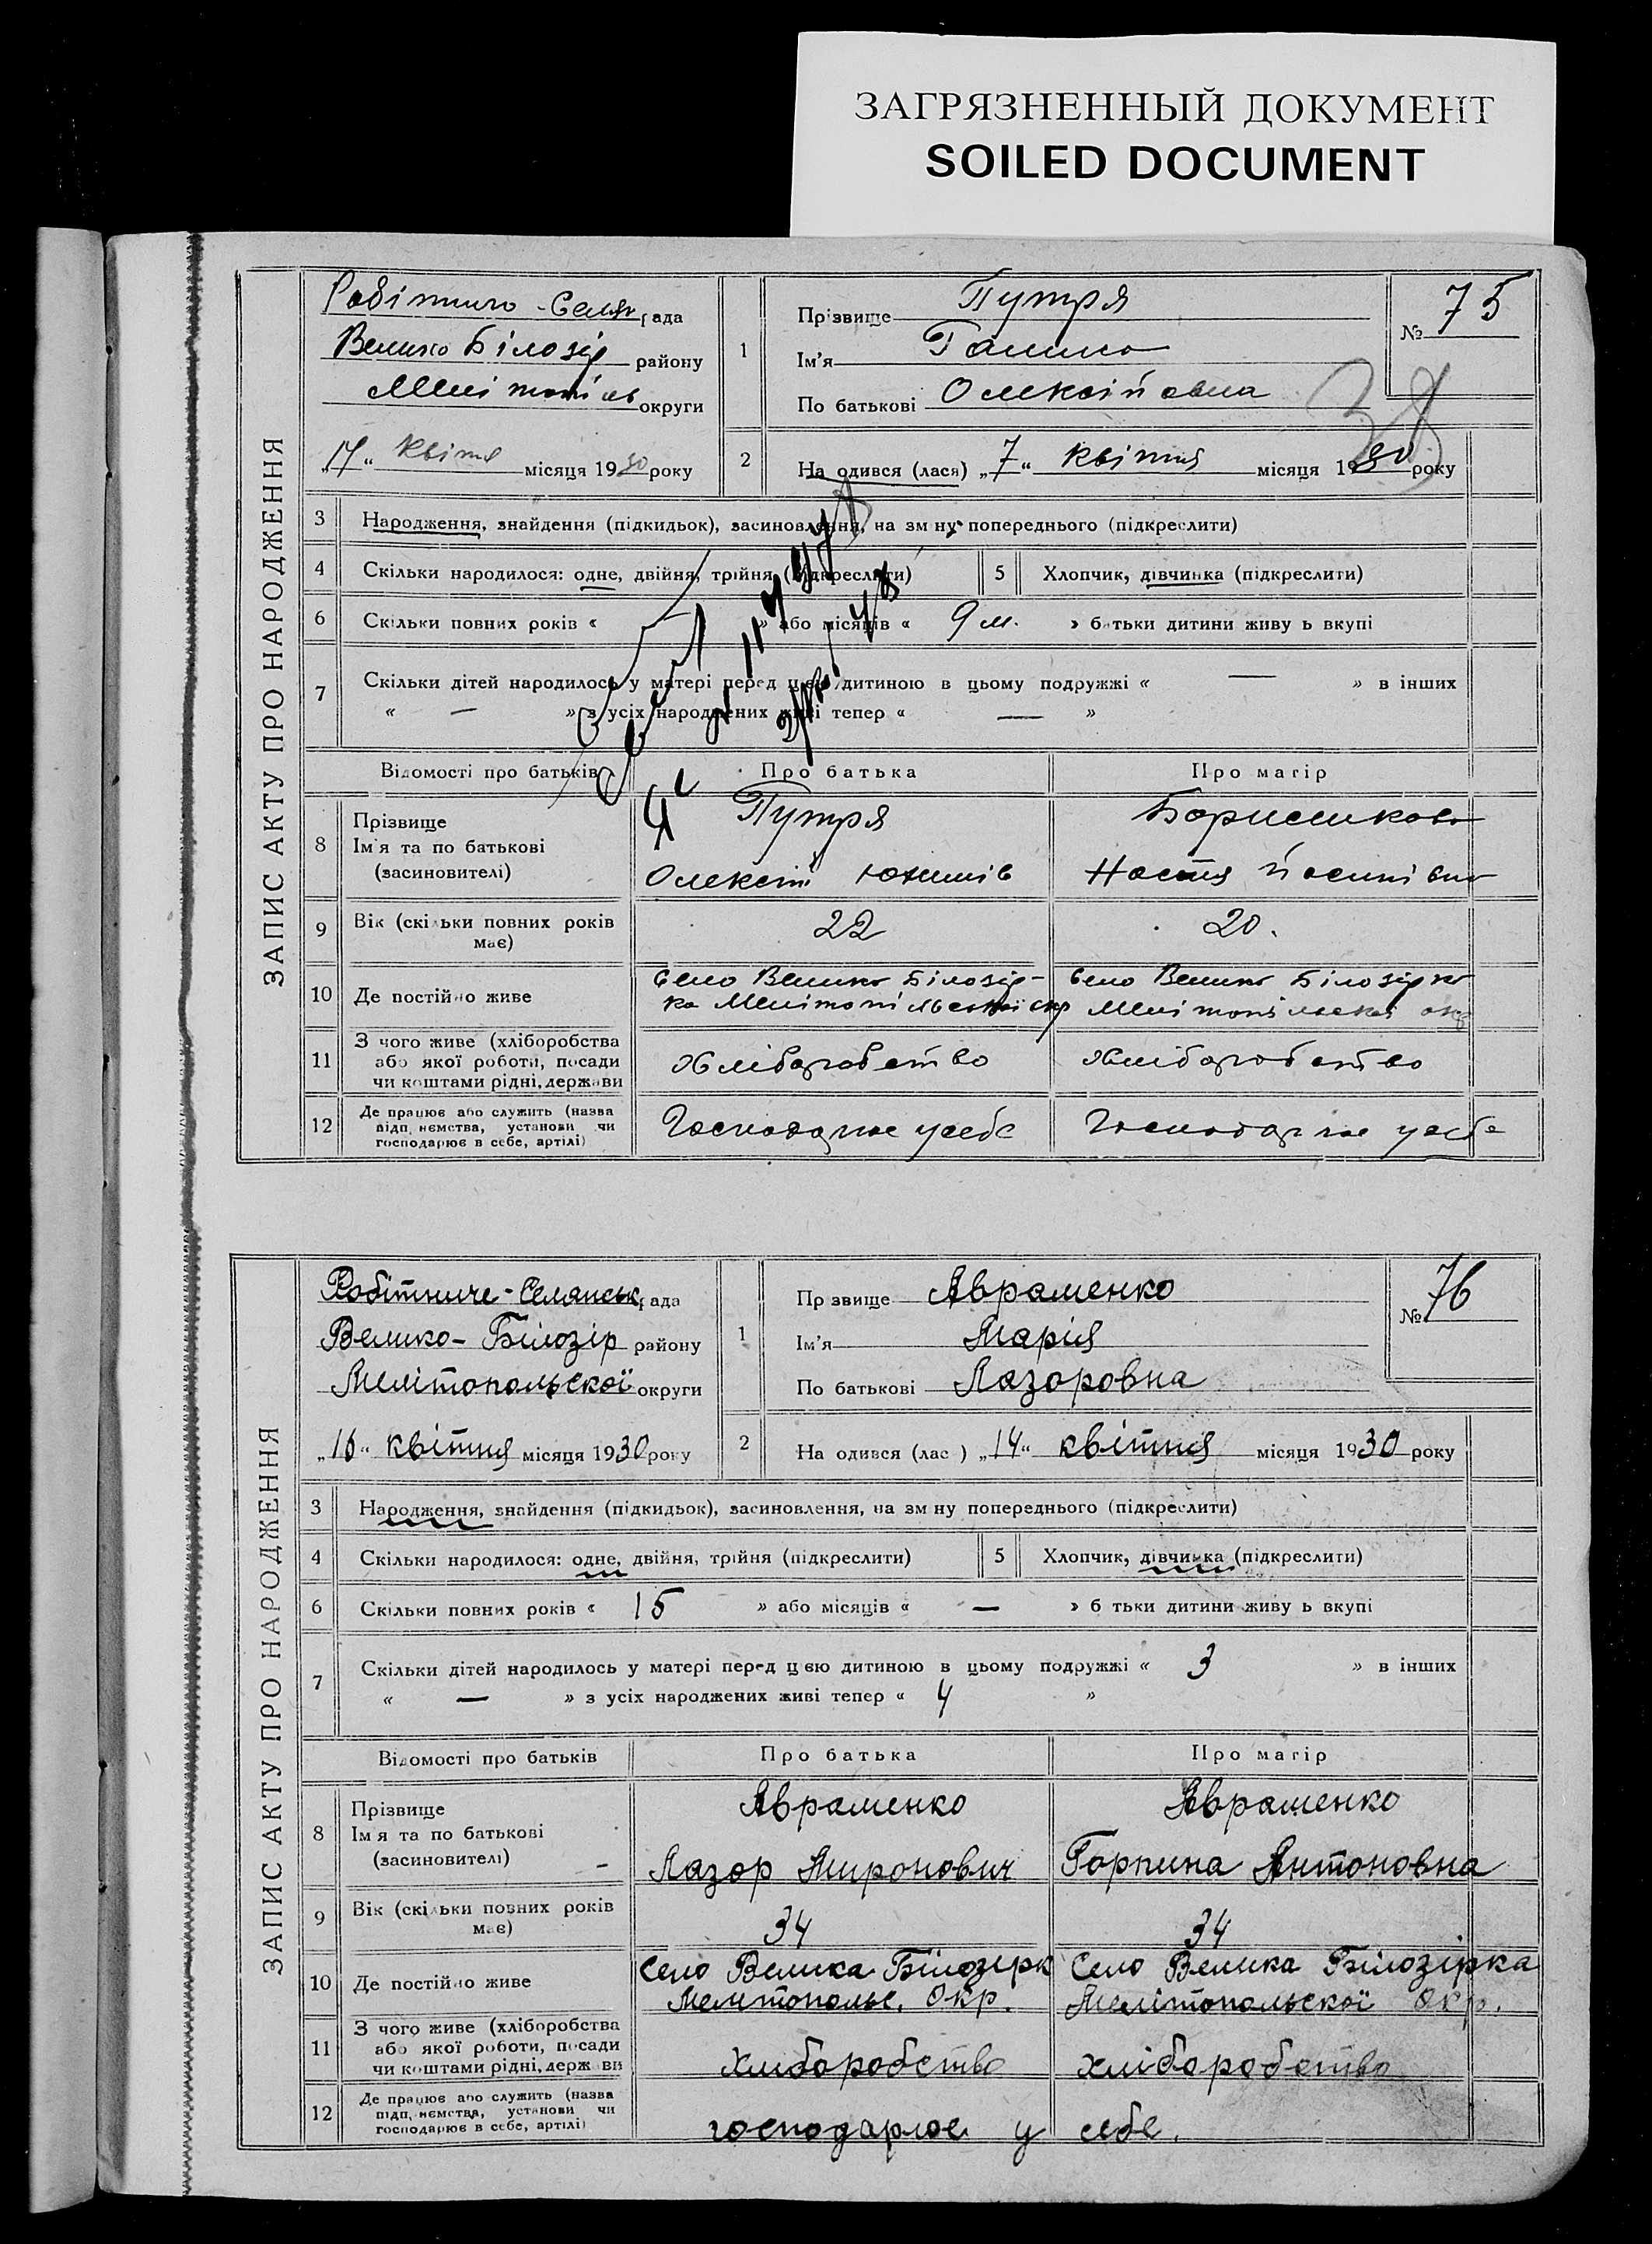 ЗАГРЯЗНЕННЫЙ ДОКУМЕНТ
SOILED DOCUMENT
ЗАПИС АКТУ ПРО НАРОДЖЕННЯ
Робітничо - Селян рада
Велико Білозір району
Мелітопільс округи
„14“ квітня місяця 1930 року
1
Прізвище Путря
Ім'я Галина
По батькові Олексійовна
№ 75
38
2
На одився (лася) „7“ квітня місяця 1930 року
3 Народження, знайдення (підкидьок), засиновлення, на зм ну попереднього (підкреслити)
4 Скільки народилося: одне, двійня, трійня (підкреслити)
5 Хлопчик, дівчинка (підкреслити)
6 Скільки повних років « » або місяців « 9 м. » батьки дитини живу ь вкупі
7 Скільки дітей народилось у матері перед цією дитиною в цьому подружжі « — » в інших
« — » з усіх народжених живі тепер « — »
Відомості про батьків Про батька Про матір
8 Прізвище
Ім'я та по батькові
(засновителі)
Путря
Олексій Юхимів
Борисенкова
Настя Йосипівна
9 Вік (скільки повних років має) 22 20.
10 Де постійно живе
Село Велико Білозір-
ка Мелітопільської окр
Село Велико Білозірка
Мелітопільської окр
11 З чого живе (хліборобства
або якої роботи, посади
чи коштами рідні, держави
Хліборобство Хліборобство
12 Де працює або служить (назва
підп, нємства, установи чи
господарює в себе, артілі)
Господарює у себе Господарює у себе
ЗАПИС АКТУ ПРО НАРОДЖЕННЯ
Робітниче-Селянськ рада
Велико-Білозір району
Мелітопольської округи
„16“ квітня місяця 1930 року
1
Пр звище Авраменко
Ім'я Марія
По батькові Лазоровна
№ 76
2
На одився (лас ) „14“ квітня місяця 1930 року
3 Народження, знайдення (підкидьок), засиновлення, на зм ну попереднього (підкреслити)
4 Скільки народилося: одне, двійня, трійня (підкреслити)
5 Хлопчик, дівчинка (підкреслити)
6 Скільки повних років « 15 » або місяців « — » б тьки дитини живу ь вкупі
7 Скільки дітей народилось у матері перед цією дитиною в цьому подружжі « 3 » в інших
« — » з усіх народжених живі тепер « 4 »
Відомості про батьків Про батька Про матір
8 Прізвище
Ім я та по батькові
(засиновителі)
Авраменко
Лазор Миронович
Авраменко
Горпина Антоновна
9 Вік (скільки повних років має) 34 34
10 Де постійно живе
Село Велика Білозірк
Мелітопольс. Окр.
Село Велика Білозірка
Мелітопольської Окр.
11 З чого живе (хліборобства
або якої роботи, посади
чи коштами рідні, держ ви
хліборобство хліборобство
12 Де працює або служить (назва
підп, нємства, установи чи
господарює в себе, артілі)
господарює у себе.